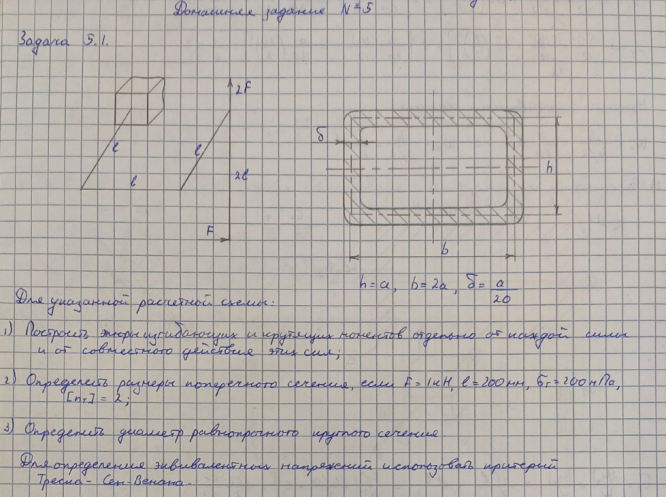 Домашнее задание №5
Задача 5.1.
2F
l
l
l
2l
F
δ
h
b
h = a, b = 2a, δ = a/20
Для указанной расчетной схемы:
1) Построить эпюры изгибающих и крутящих моментов отдельно от каждой силы
и от совместного действия этих сил;
2) Определить размеры поперечного сечения, если F = 1кН, l = 200мм, σт = 200мПа,
[nт] = 2;
3) Определить диаметр равнопрочного круглого сечения.
Для определения эквивалентных напряжений использовать критерий
Треска - Сен-Венана.